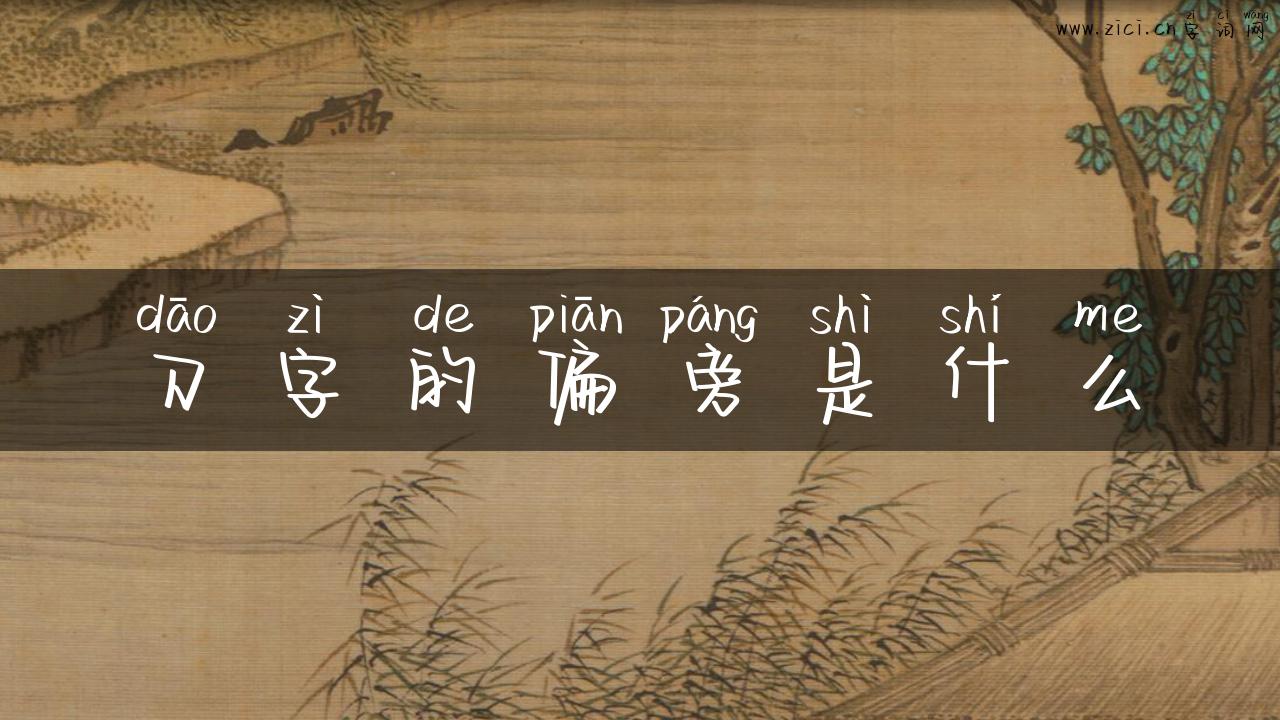 zì cí wǎng
www.zici.cn字词网
dāo zì de piān páng shì shí me
刀字的偏旁是什么